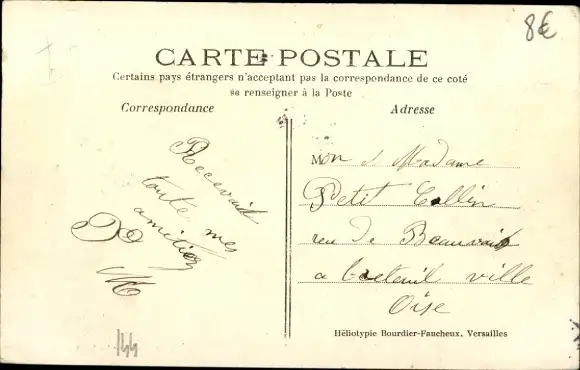 8€
CARTE POSTALE
Certains pays étrangers n'acceptent pas la correspondance de ce coté
se renseigner à la Poste
Correspondance
Adresse
Recevait
toute mes
amitiez
M
Mon & Madame
Petit Collin
reu de Beauvais
a breteuil ville
Oise
Héliotypie Bourdier-Faucheux, Versailles
144